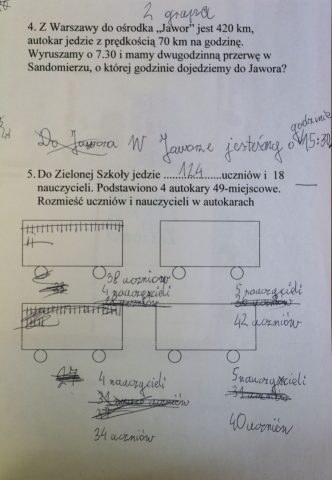 2 grupa
4. Z Warszawy do ośrodka „Jawor” jest 420 km,
autokar jedzie z prędkością 70 km na godzinę.
Wyruszamy o 7.30 i mamy dwugodzinną przerwę w
Sandomierzu, o której godzinie dojedziemy do Jawora?
godzinie
Do Jawora W Jaworze jesteśmy o 15:30
5. Do Zielonej Szkoły jedzie ....124....uczniów i 18
nauczycieli. Podstawiono 4 autokary 49-miejscowe.
Rozmieść uczniów i nauczycieli w autokarach
38 uczniów
4 nauczycieli 5 nauczycieli
42 uczniów
4 nauczycieli 5 nauczycieli
31 uczniów
34 uczniów 40 uczniów